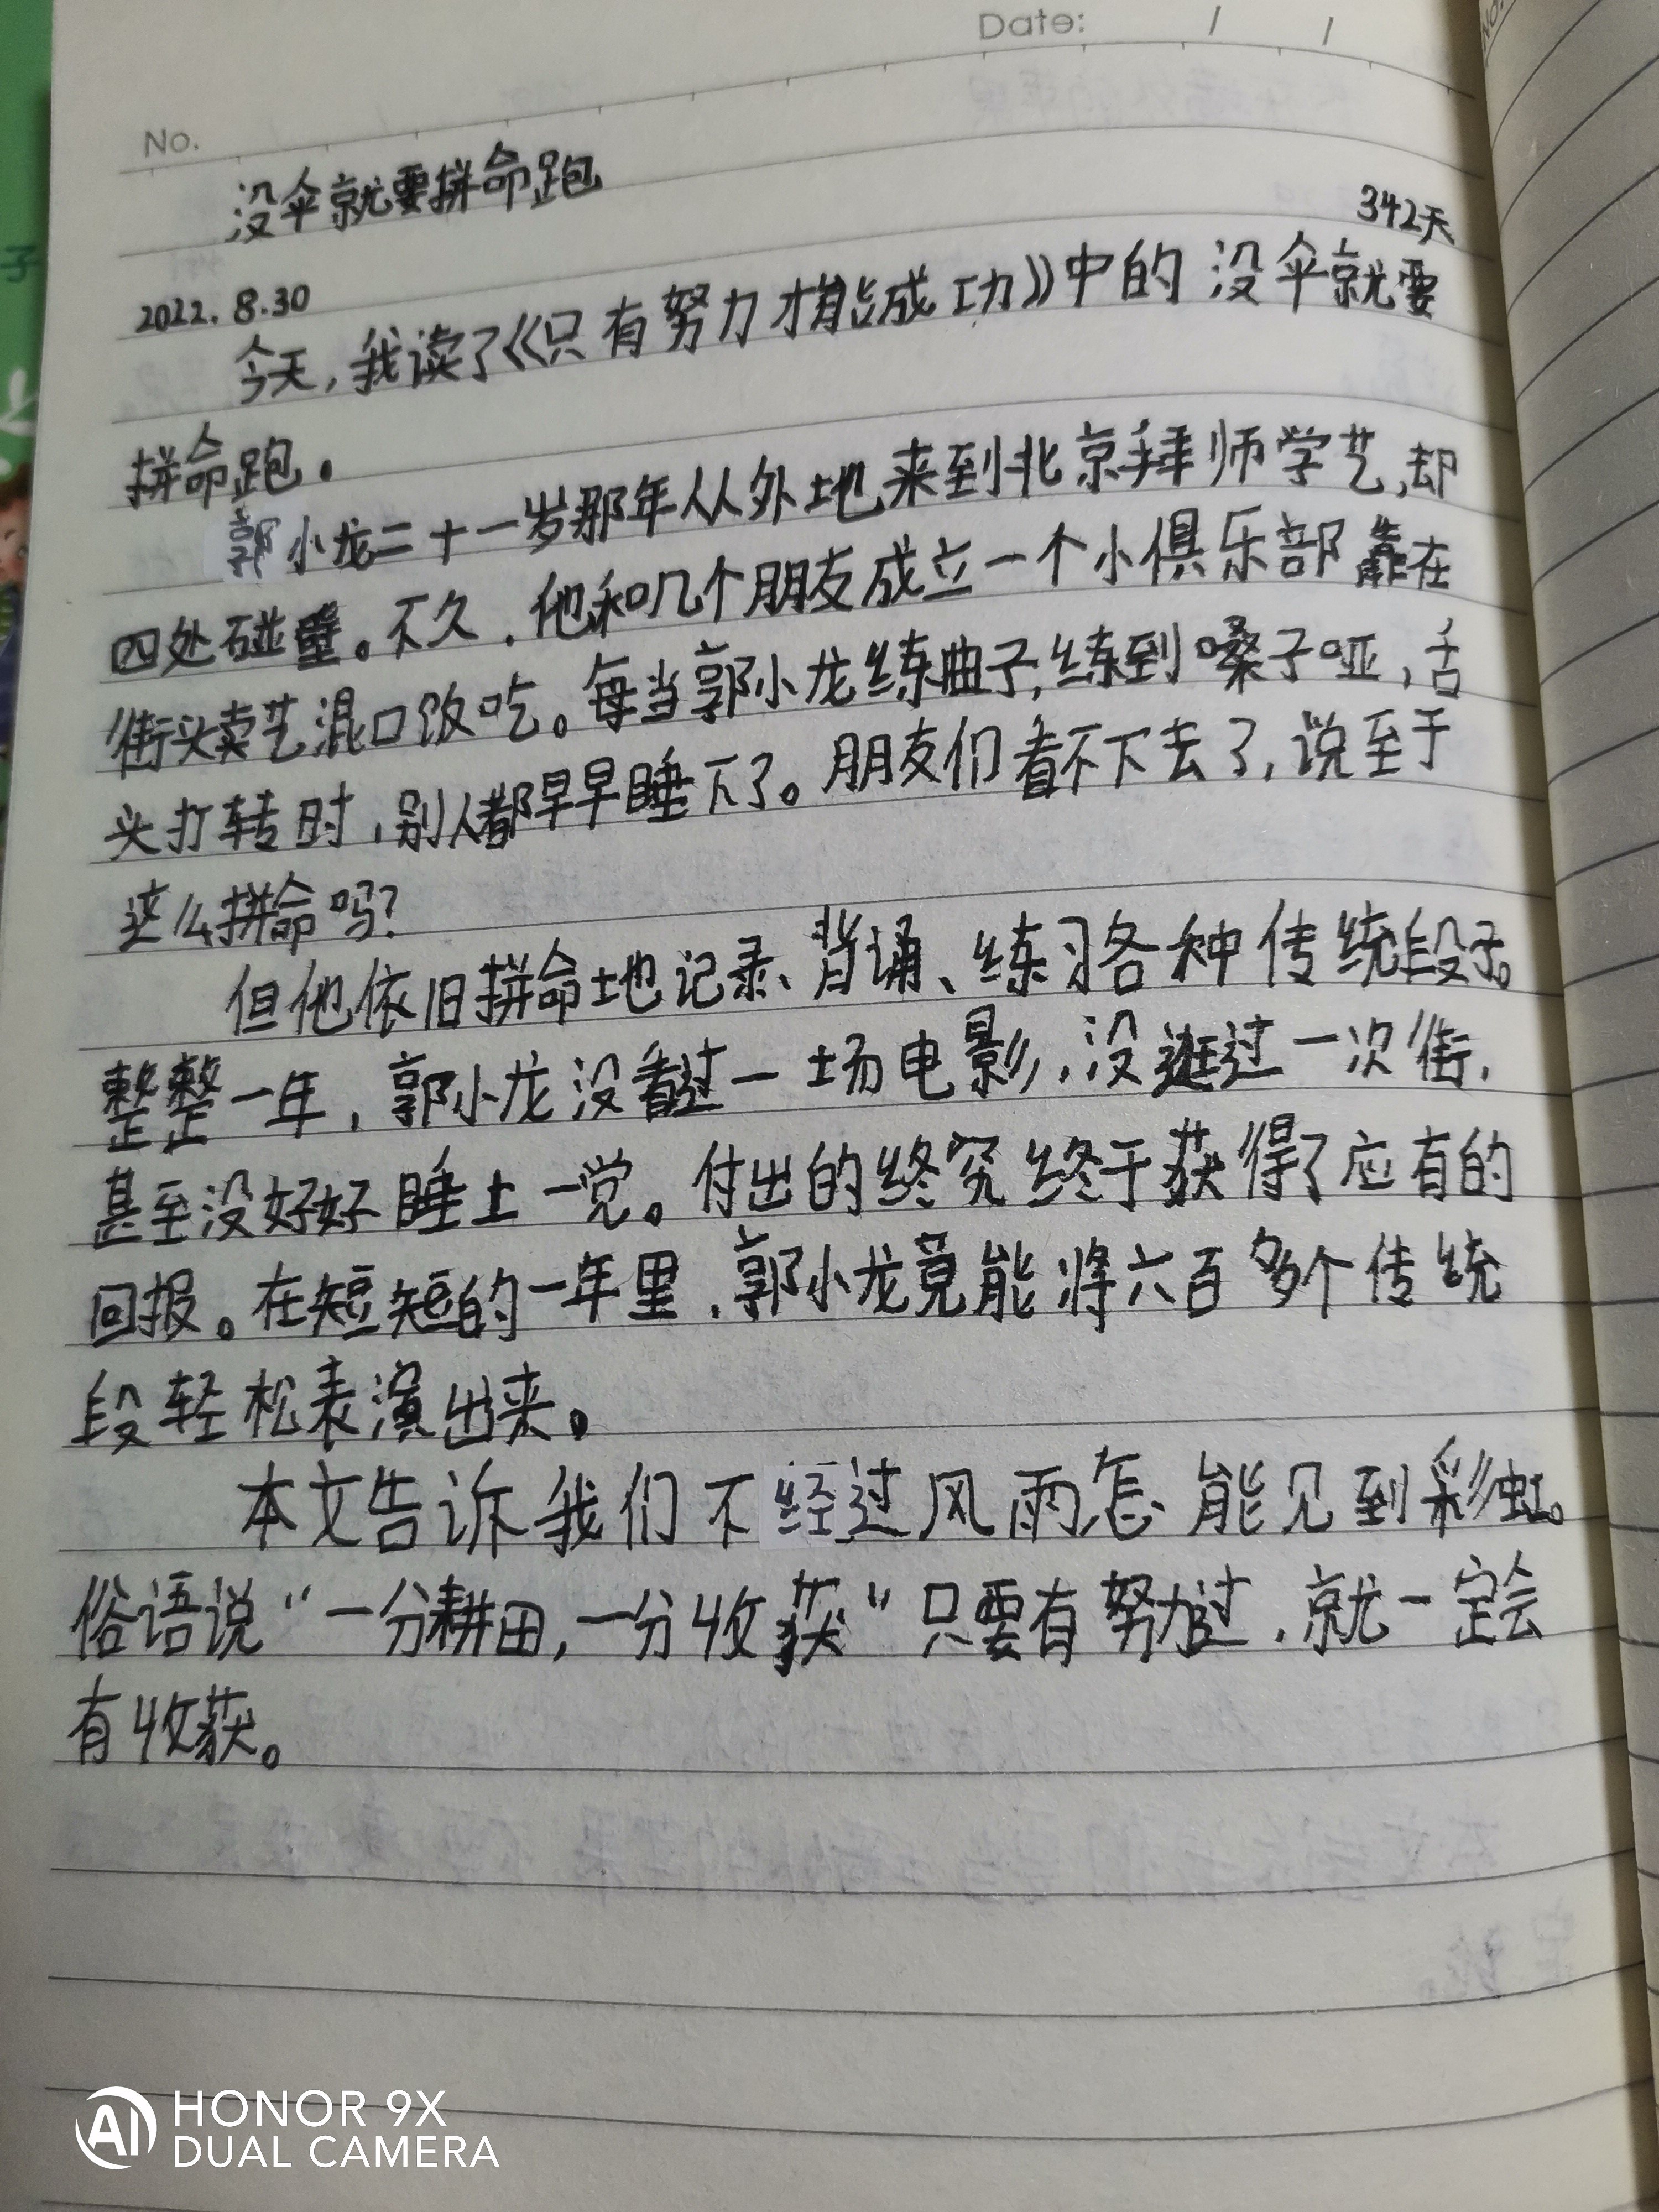 Date: / /
No.
没伞就要拼命跑
342天
2022.8.30
今天,我读了《只有努力才能成功》中的 没伞就要
拼命跑.
郭小龙二十一岁那年从外地来到北京拜师学艺,却
四处碰壁。不久,他和几个朋友成立一个小俱乐部靠在
街头卖艺混口饭吃。每当郭小龙练曲子,练到嗓子哑,舌
头打转时,别人都早早睡下了。朋友们看不下去了,说至于
这么拼命吗?
但他依旧拼命地记录、背诵、练习各种传统段子。
整整一年,郭小龙没看过一场电影,没逛过一次街,
甚至没好好睡上一觉。付出的终究终于获得了应有的
回报。在短短的一年里,郭小龙竟能将六百多个传统
段轻松表演出来。
本文告诉我们不经过风雨怎能见到彩虹。
俗语说“一分耕田,一分收获”只要有努力过,就一定会
有收获。
AI HONOR 9X
DUAL CAMERA